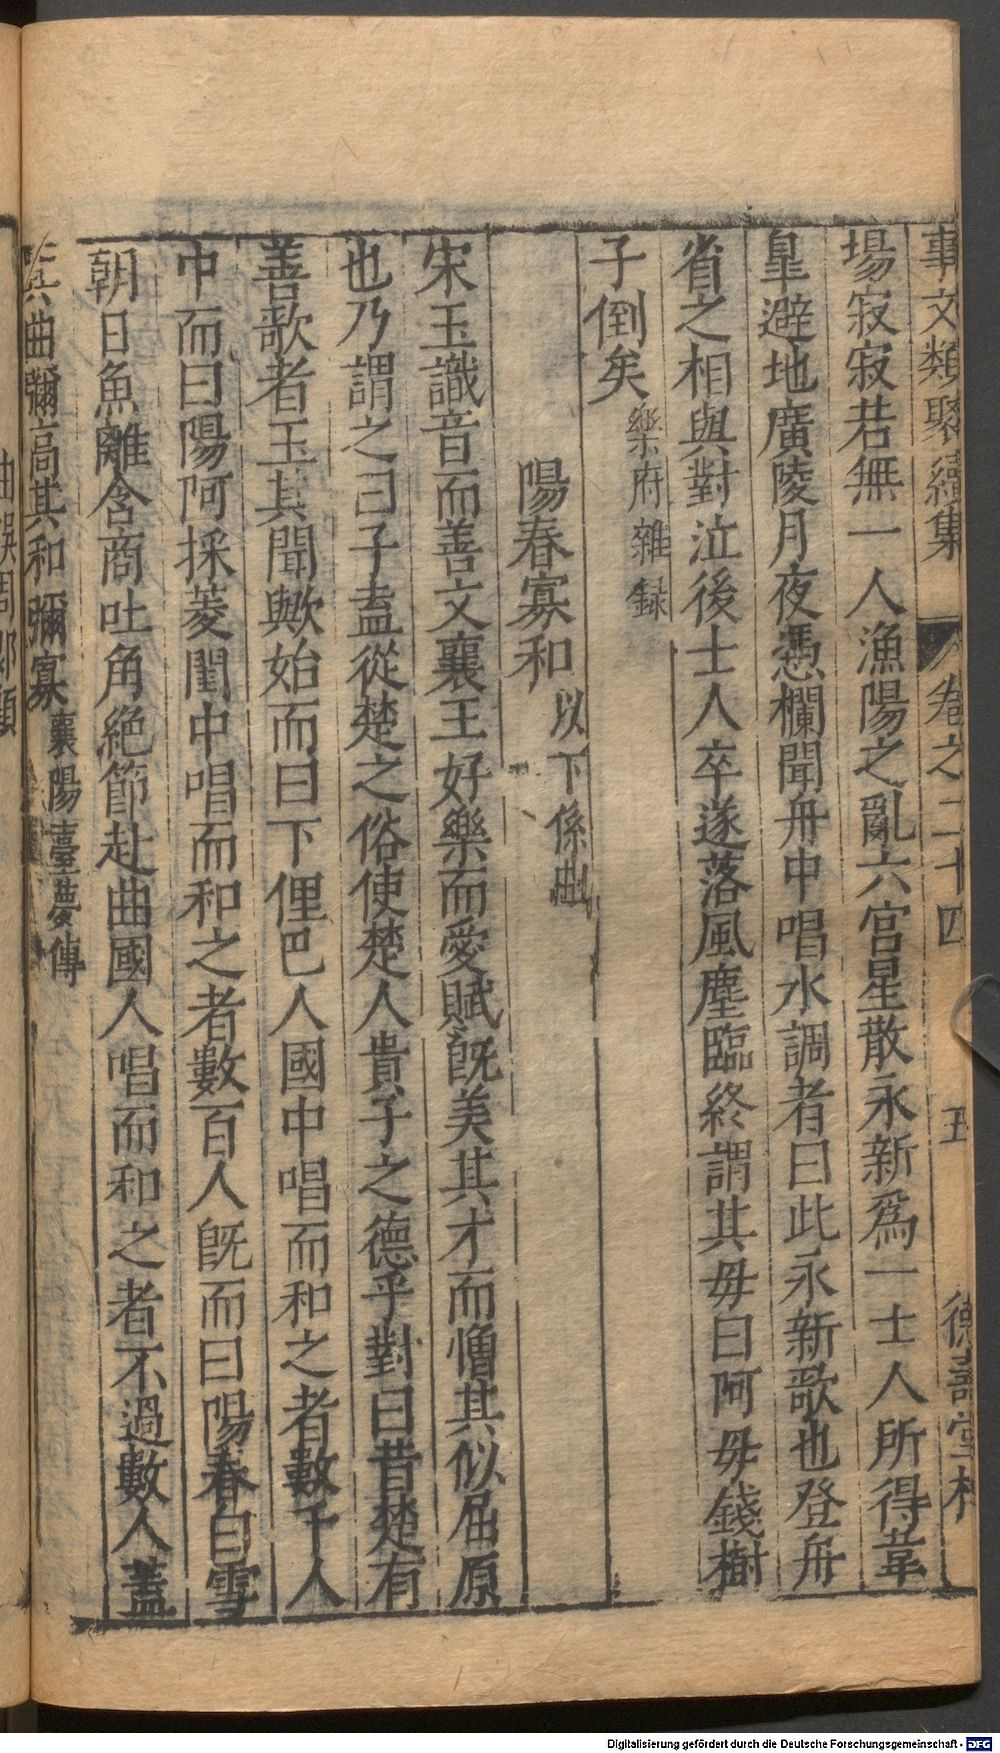 事文類聚續集 卷之二十四 五 德壽堂梓
塲寂寂若無一人漁陽之亂六宮星散永新爲一士人所得韋
臯避地廣陵月夜憑欄聞舟中唱水調者曰此永新歌也登舟
省之相與對泣後士人卒遂落風塵臨終謂其母曰阿母錢樹
子倒矣樂府雜録
陽春寡和以下係曲
宋玉識音而善文襄王好樂而愛賦旣美其才而憎其似屈原
也乃謂之曰子盍從楚之俗使楚人貴子之德乎對曰昔楚有
善歌者玉其聞歟始而曰下俚巴人國中唱而和之者數千人
中而曰陽阿採菱閨中唱而和之者數百人旣而曰陽春白雪
朝日魚離含商吐角絶節赴曲國人唱而和之者不過數人蓋
其曲彌高其和彌寡襄陽臺夢傳
曲誤周郎顧
Digitalisierung gefördert durch die Deutsche Forschungsgemeinschaft - DFG